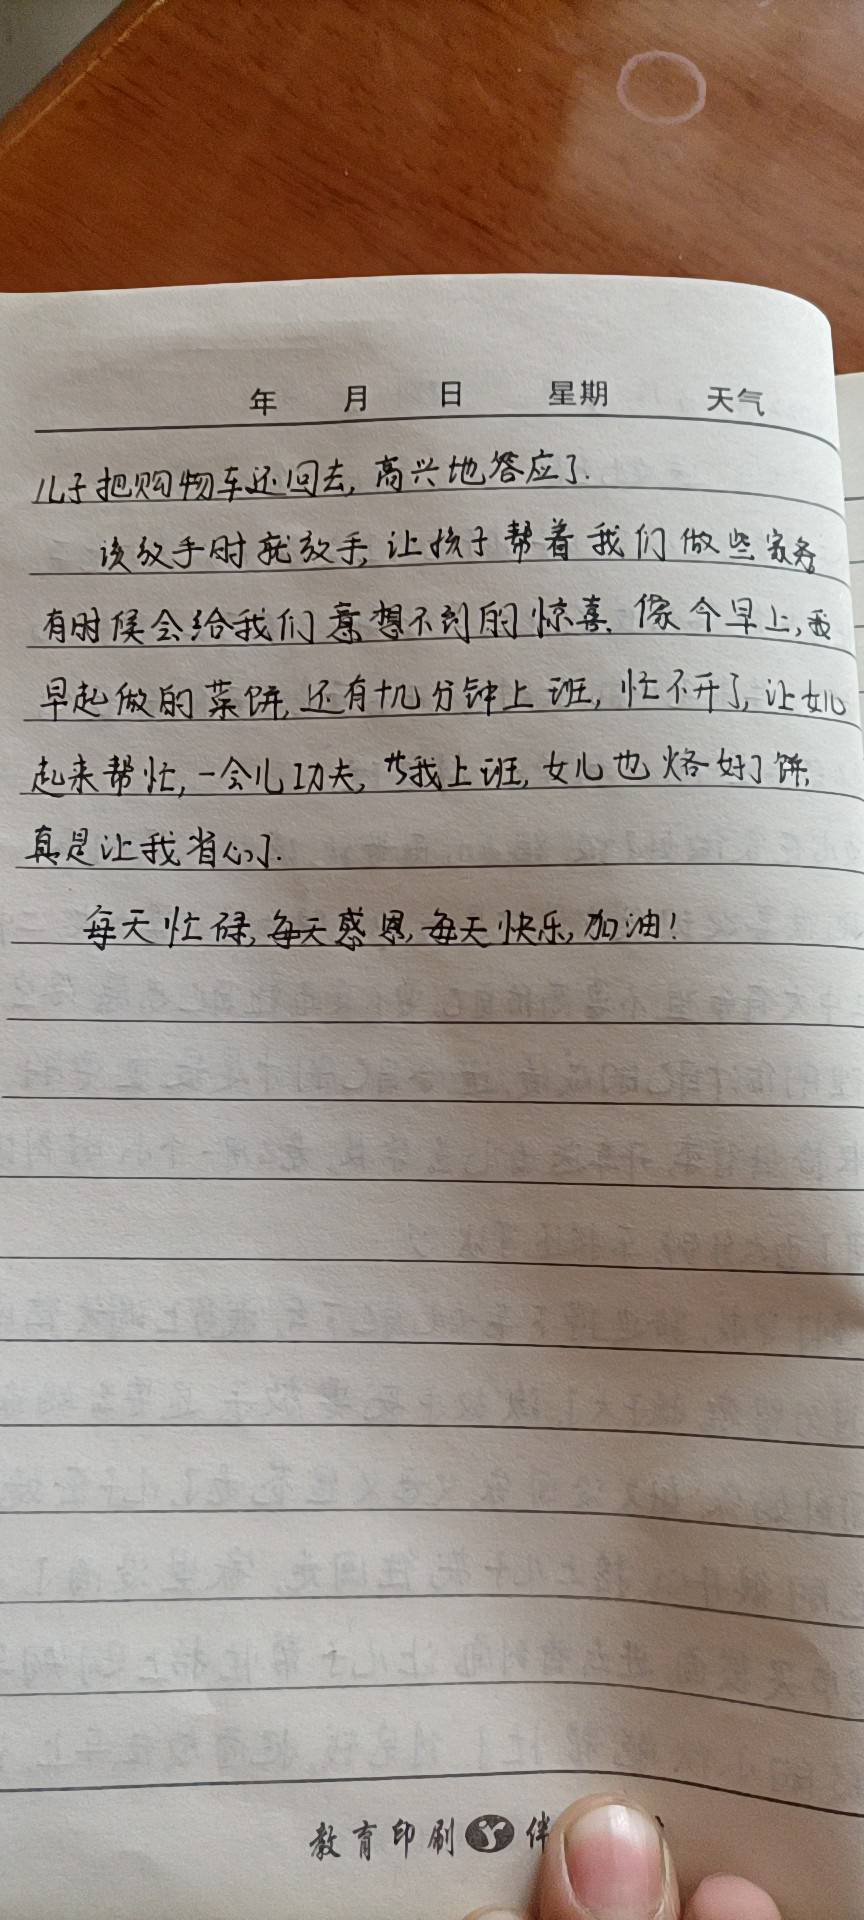 年 月 日 星期 天气
儿子把购物车还回去,高兴地答应了.
该放手时就放手,让孩子帮着我们做些家务
有时候会给我们意想不到的惊喜.像今早上,我
早起做的菜饼,还有十几分钟上班,忙不开了,让女儿
起来帮忙,一会儿功夫,我上班,女儿也烙好了饼,
真是让我省心了.
每天忙碌,每天感恩,每天快乐,加油!
教育印刷 伴